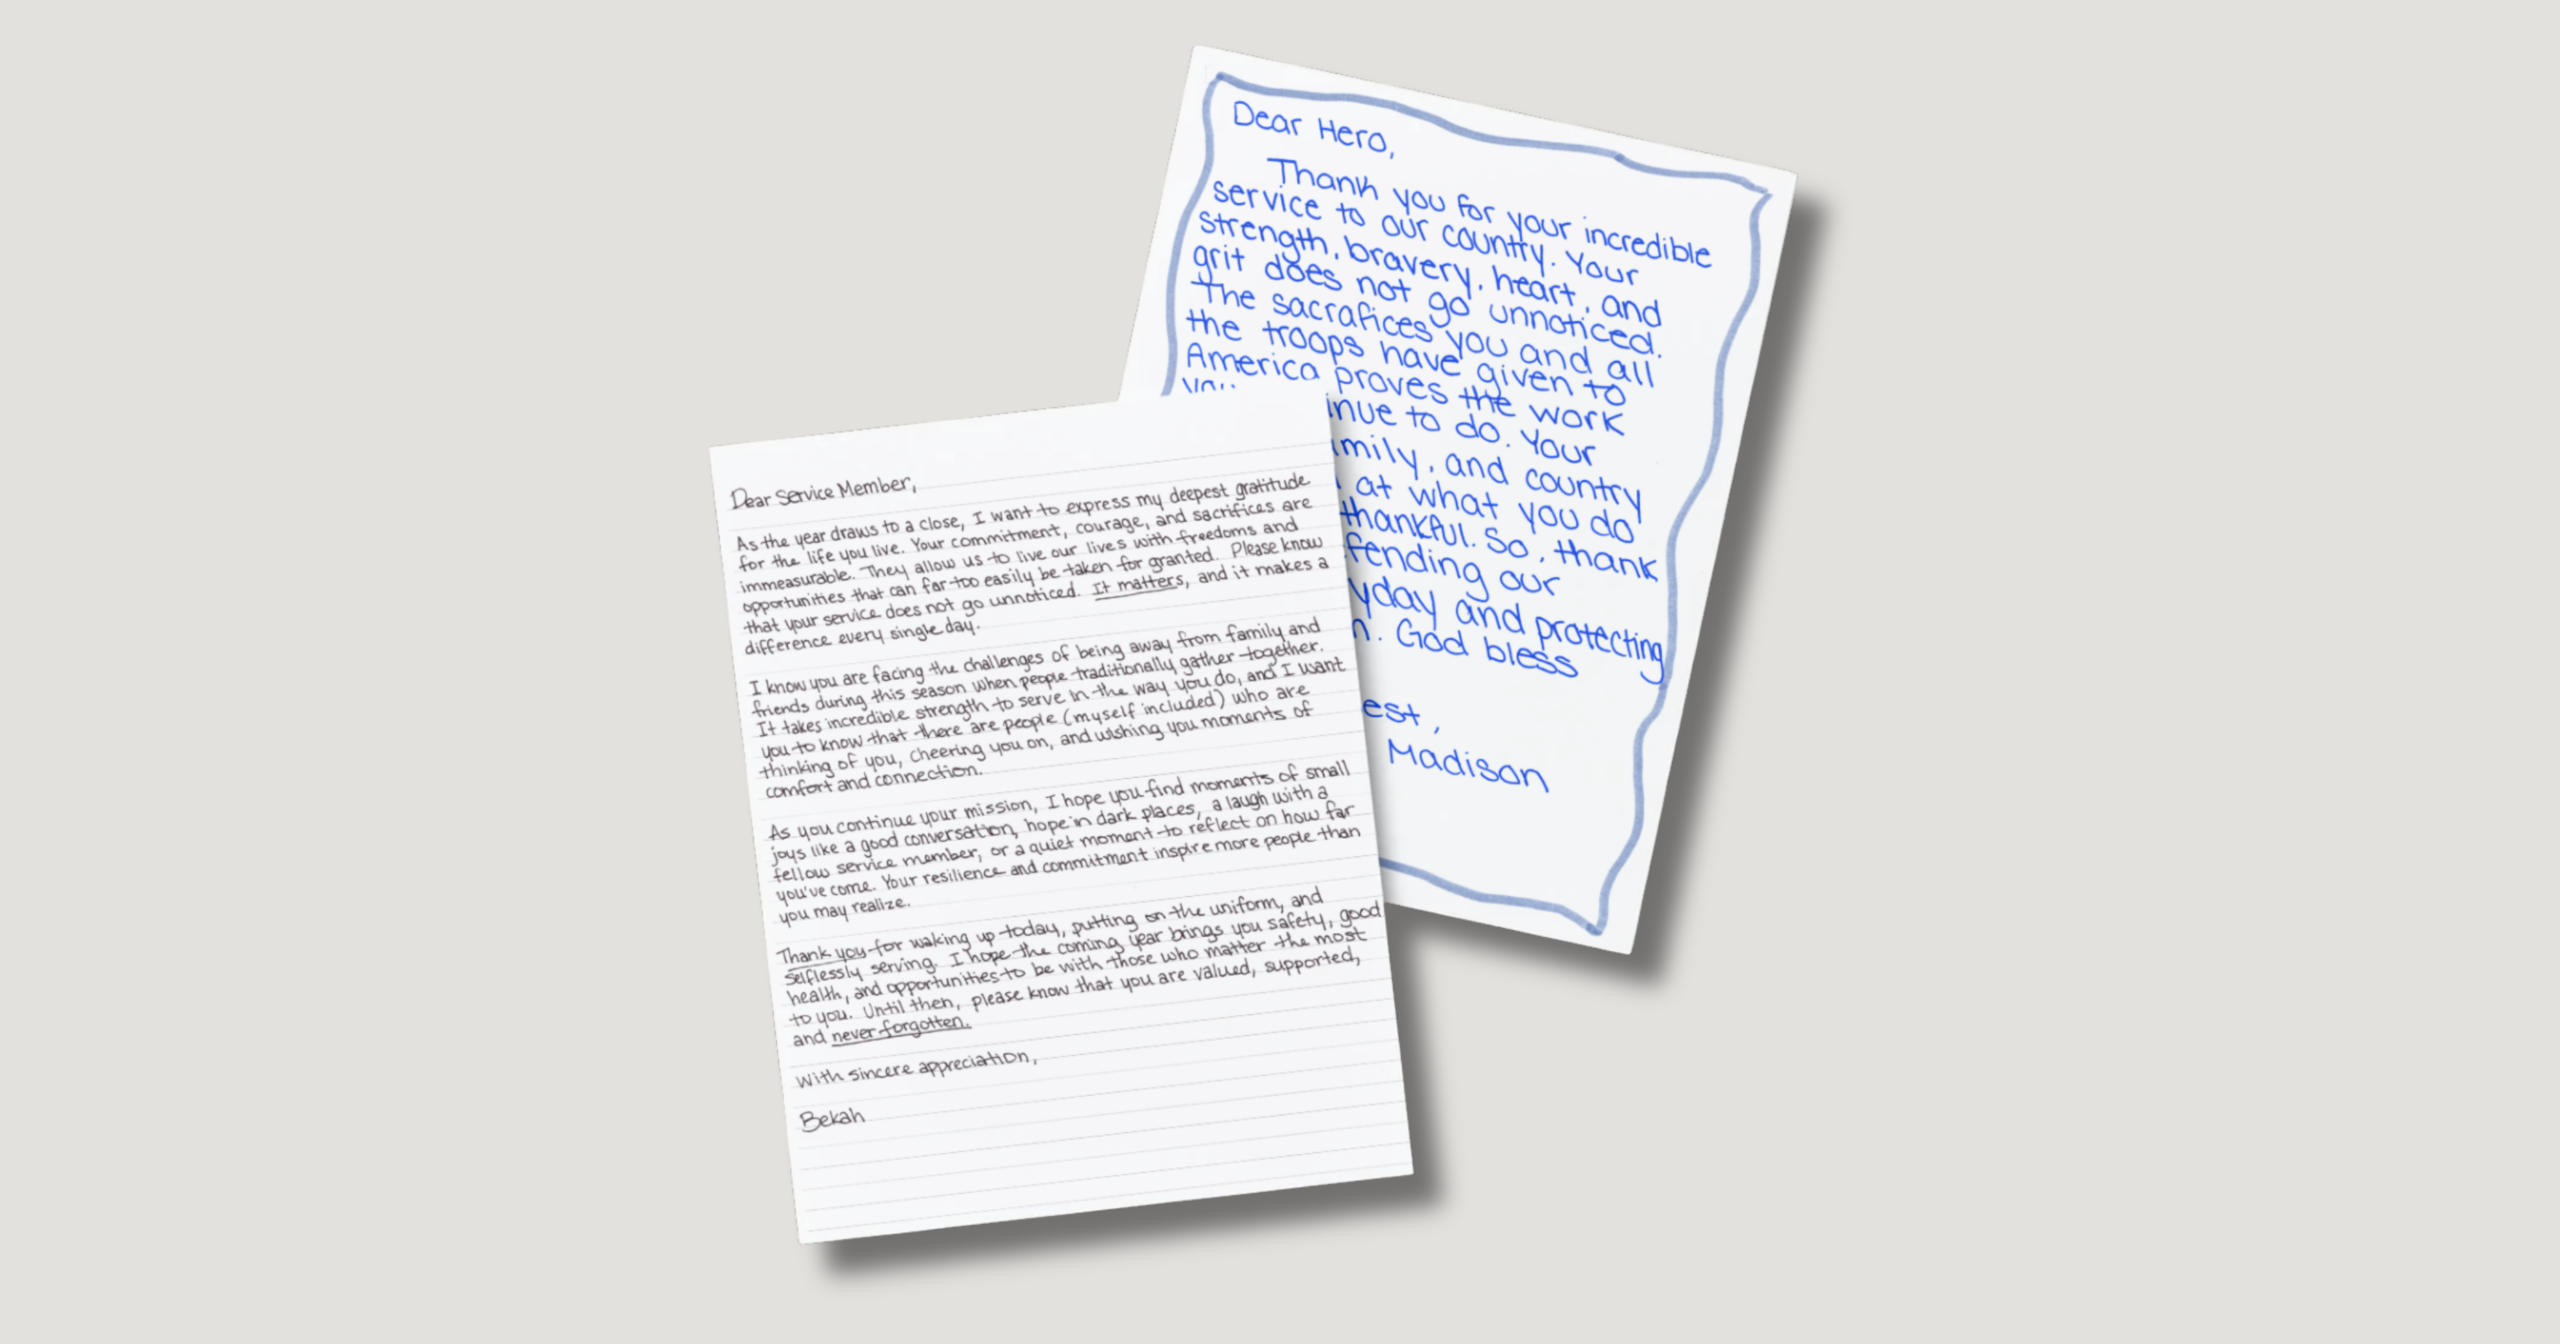 Dear Hero,
Thank you for your incredible
service to our country. Your
strength, bravery, heart, and
grit does not go unnoticed.
The sacrafices you and all
the troops have given to
America proves the work
inue to do. Your
mily, and country
at what you do
thankful. So, thank
fending our
yday and protecting
n. God bless
est,
Madison
Dear Service Member,
As the year draws to a close, I want to express my deepest gratitude
for the life you live. Your commitment, courage, and sacrifices are
immeasurable. They allow us to live our lives with freedoms and
opportunities that can far too easily be taken for granted. Please know
that your service does not go unnoticed. It matters, and it makes a
difference every single day.
I know you are facing the challenges of being away from family and
friends during this season when people traditionally gather together.
It takes incredible strength to serve in the way you do, and I want
you to know that there are people (myself included) who are
thinking of you, cheering you on, and wishing you moments of
comfort and connection.
As you continue your mission, I hope you find moments of small
joys like a good conversation, hope in dark places, a laugh with a
fellow service member, or a quiet moment to reflect on how far
you've come. Your resilience and commitment inspire more people than
you may realize.
Thank you for waking up today, putting on the uniform, and
selflessly serving. I hope the coming year brings you safety, good
health, and opportunities to be with those who matter the most
to you. Until then, please know that you are valued, supported,
and never forgotten.
With sincere appreciation,
Bekah